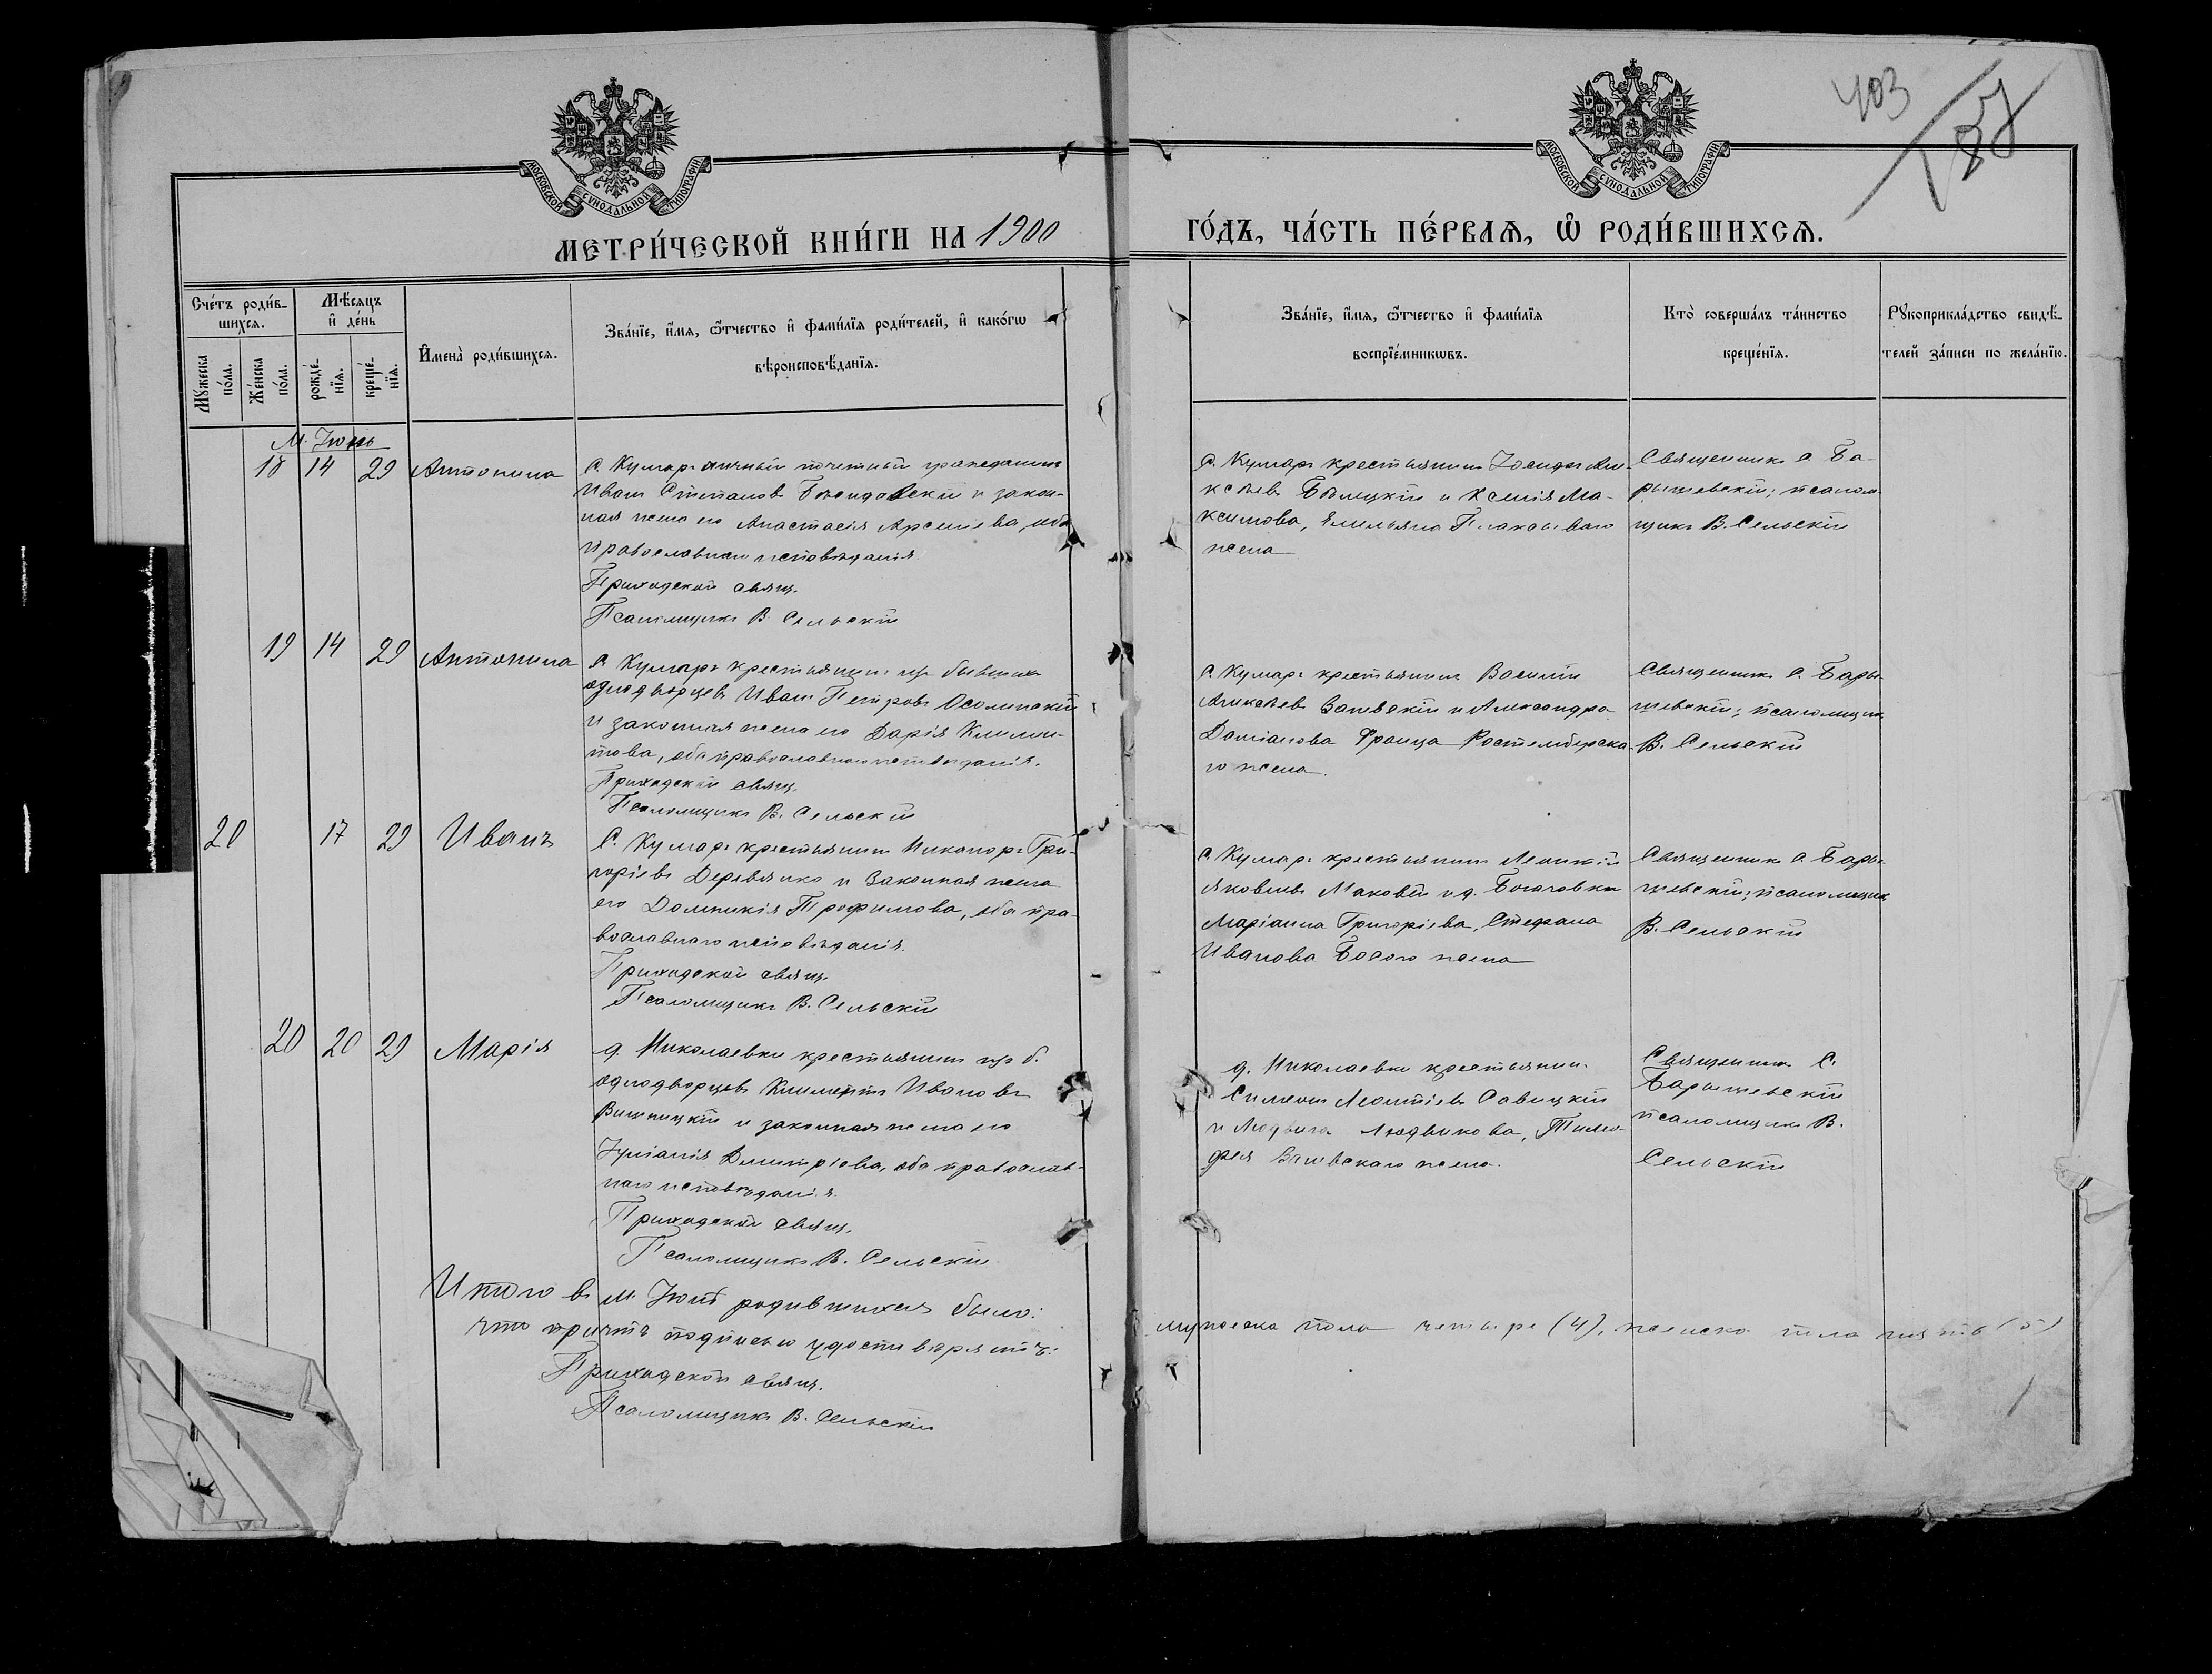 403
МОСКОВСКОЙ СѴНОДАЛЬНОЙ ТИПОГРАФІИ
МОСКОВСКОЙ СѴНОДАЛЬНОЙ ТИПОГРАФІИ
МЕТРИ́ЧЕСКОЙ КНИ́ГИ НА 1900
ГО́ДЪ, ЧА́СТЬ ПЕ́РВАѦ, Ѽ РОДИ́ВШИХСѦ.
Сче́тъ роди́в-
шихсѧ.
Мꙋ́жеска
по́ла.
Же́нска
по́ла.
Мѣ́сѧцъ
и҆ де́нь
рожде́-
нїѧ.
креще́-
нїѧ.
И҆мена̀ роди́вшихсѧ.
Зва́нїе, и҆́мѧ, ѻ҆́тчество и҆ фами́лїѧ роди́телей, и҆ како́гѡ
вѣроисповѣ́данїѧ.
Зва́нїе, и҆́мѧ, ѻ҆́тчество и҆ фами́лїѧ
воспрїе́мникѡвъ.
Кто̀ соверша́лъ та́инство
креще́нїѧ.
Рꙋкоприкла́дство свидѣ́-
телей за́писи по жела́нїю.
М. Іюнь
18 14 29 Антонина
С. Кумаръ личный почетный гражданинъ
Иванъ Стефановъ и закон-
ная жена его Анастасія Арсеніева, оба
православнаго исповѣданія.
Приходской свящ.
Псаломщикъ В. Сельскій
С. Кумаръ крестьянинъ Іосифъ
и Ксенія Ма-
ксимова, Емельяна
жена
Священникъ С. Ба-
рышевскій; псалом-
щикъ В. Сельскій
19 14 29 Антонина
С. Кумаръ крестьянинъ изъ бывшихъ
однодворцевъ Иванъ Петровъ Осолинскій
и законная жена его Дарія Климен-
това, оба православнаго исповѣданія.
Приходской свящ.
Псаломщикъ В. Сельскій
С. Кумаръ крестьянинъ Василій
и Александра
Даміанова Франца
го жена.
Священникъ С. Бары-
шевскій; псаломщикъ
В. Сельскій
20 17 29 Иванъ
С. Кумаръ крестьянинъ Никаноръ Гри-
горіевъ Деревянко и законная жена
его Домникія Трофимова, оба пра-
вославнаго исповѣданія.
Приходской свящ.
Псаломщикъ В. Сельскій
С. Кумаръ крестьянинъ
Яковлевъ Маковѣй и д. Богачовки
Маріанна Григоріева, Стефана
Иванова Босого жена
Священникъ С. Бары-
шевскій; псаломщикъ
В. Сельскій
20 20 29 Марія
д. Николаевки крестьянинъ изъ б.
однодворцевъ Климентъ Ивановъ
Вишницкій и законная жена его
Іуліанія Димитріева, оба православ-
наго исповѣданія.
Приходской свящ.
Псаломщикъ В. Сельскій
д. Николаевки крестьянинъ
Симеонъ Леонтіевъ Савицкій
и Людвика Людвикова, Тимо-
фея жена.
Священникъ С.
Барышевскій
псаломщикъ В.
Сельскій
Итого въ м. Іюнѣ родившихся было:
мужеска пола четыре (4), женска пола пять (5)
что причтъ подписью удостовѣряетъ:
Приходской свящ.
Псаломщикъ В. Сельскій